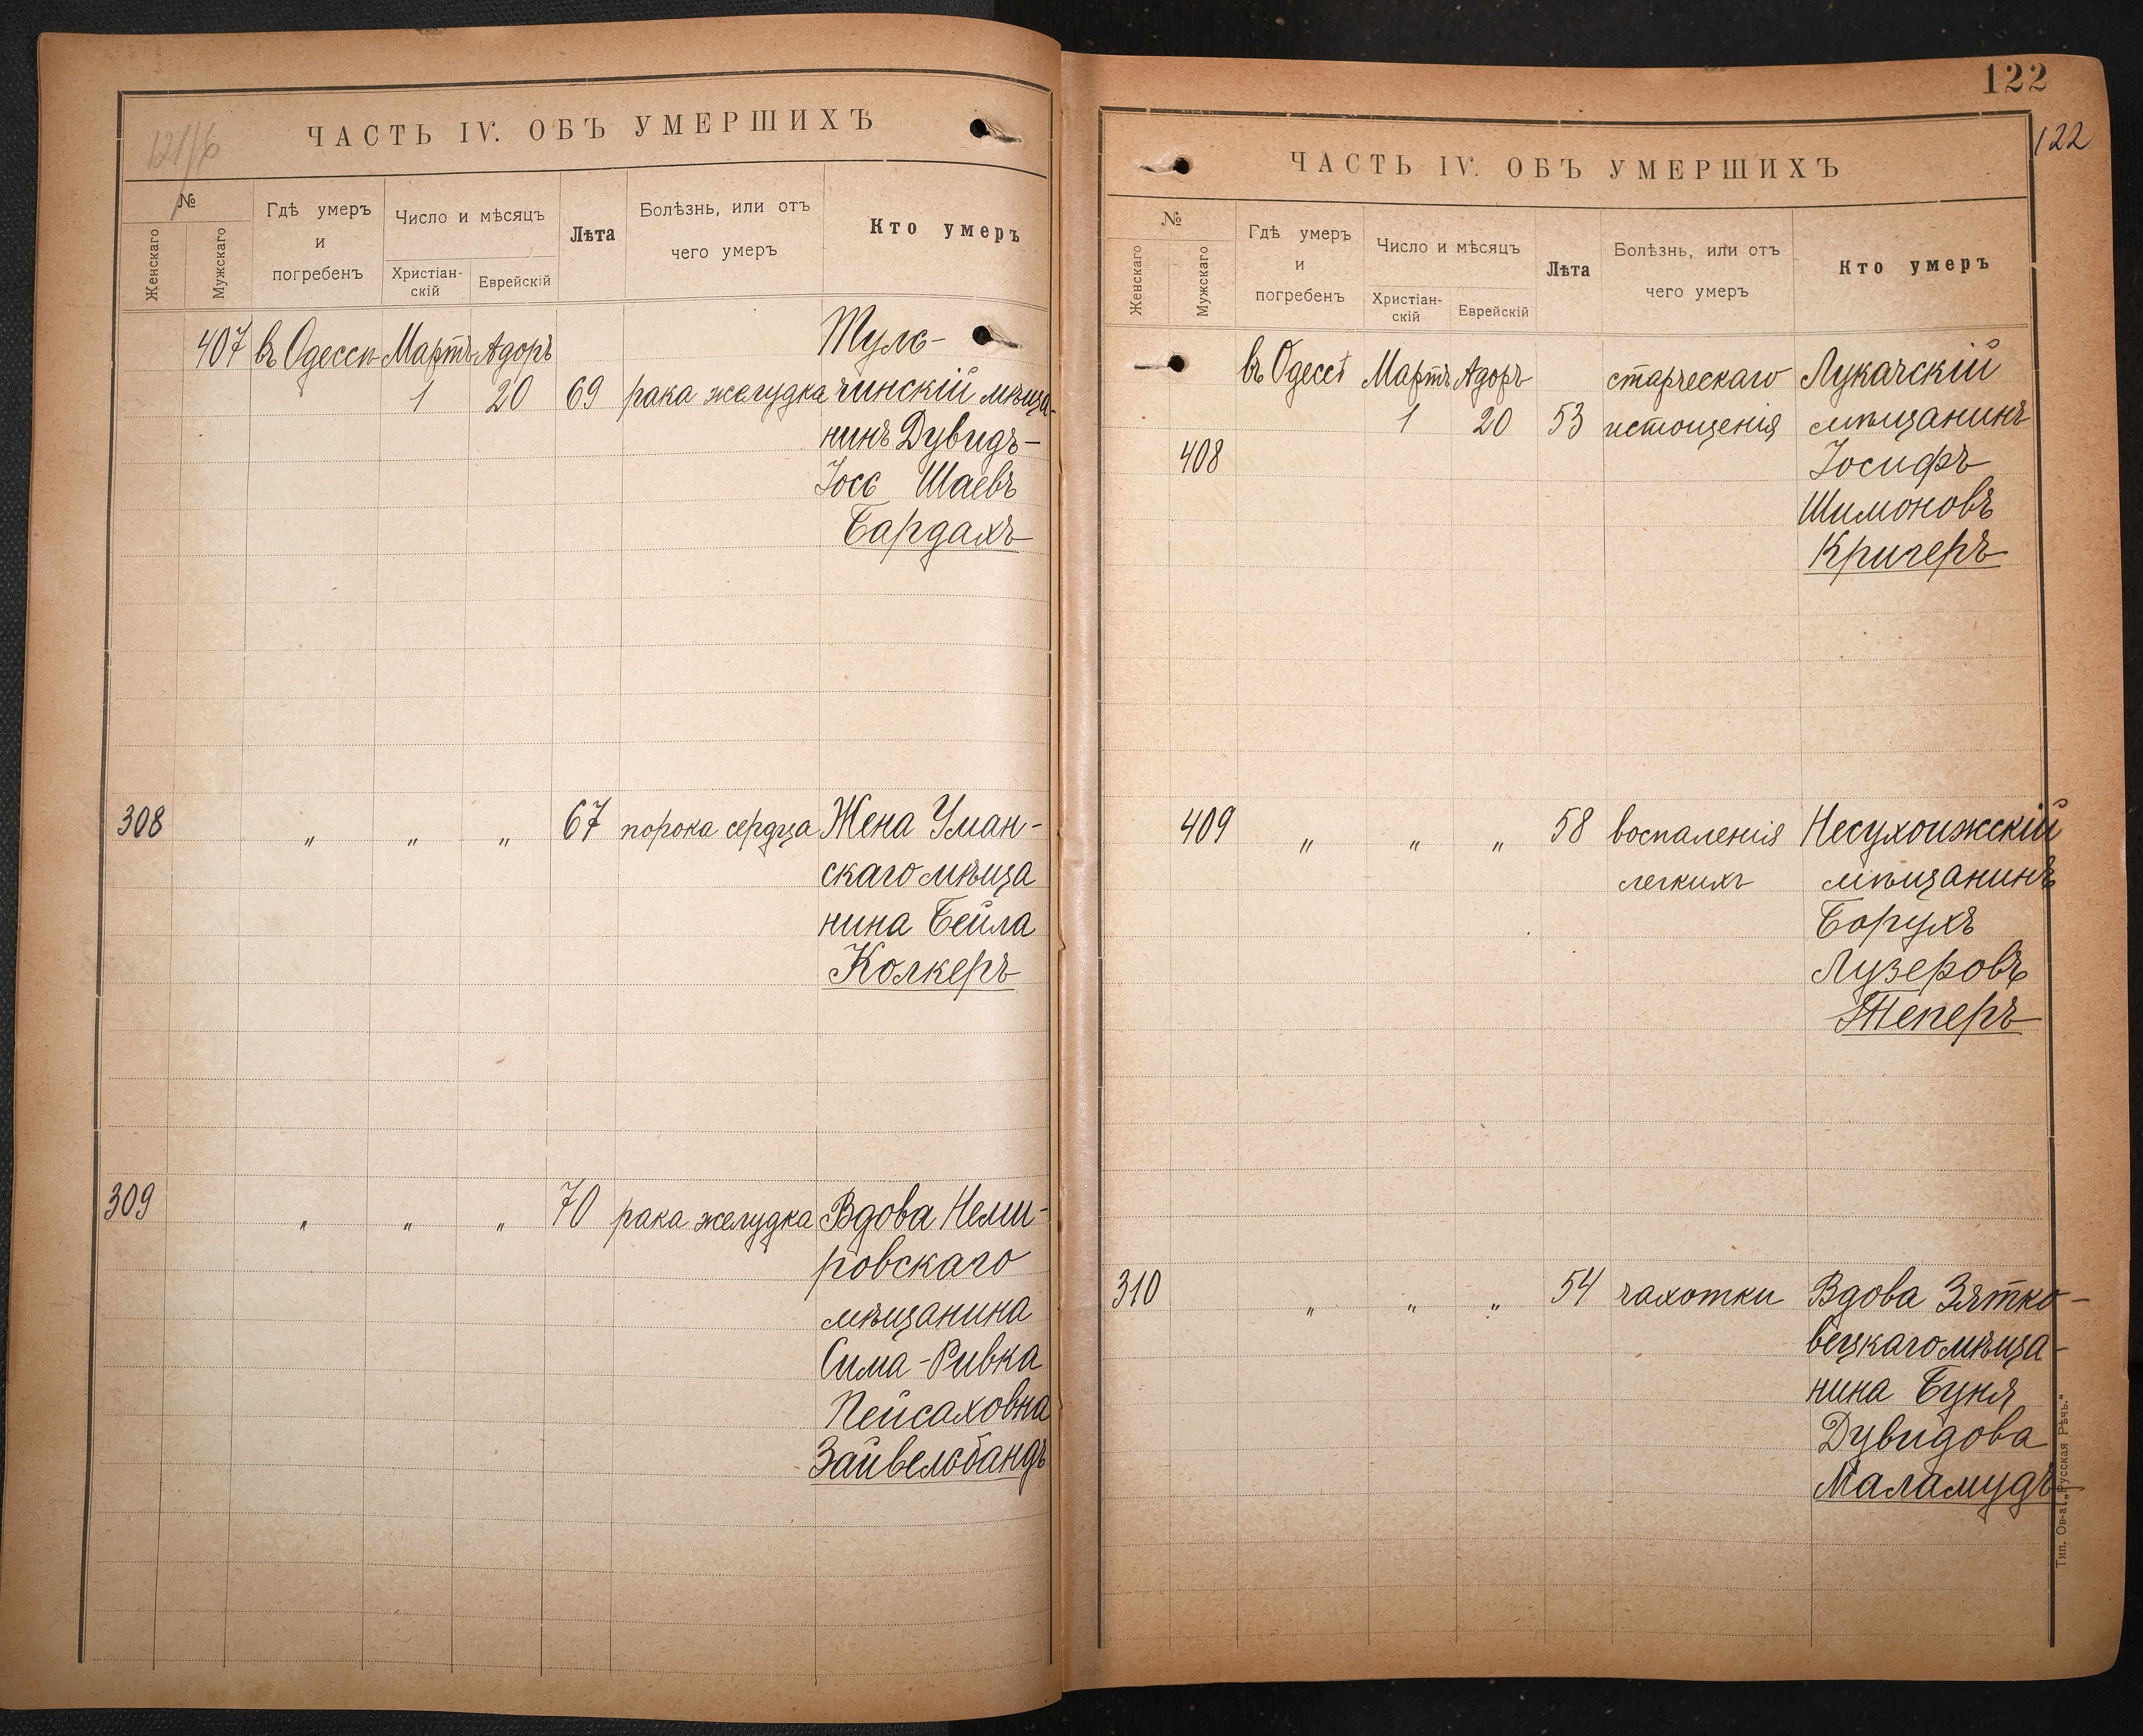 121/6
ЧАСТЬ IV. ОБЪ УМЕРШИХЪ
№
Женскаго
Мужскаго
Гдѣ умеръ
и
погребенъ
Число и мѣсяцъ
Христіан-
скій
Еврейскій
Лѣта
Болѣзнь, или отъ
чего умеръ
Кто умеръ
407 въ Одессѣ Мартъ Адоръ Туль-
1 20 69 рака желудка чинскій мѣща-
нинъ Дувидъ-
Іось Шаевъ
Бардахъ
308 " " " 67 порока сердца Жена Уман-
скаго мѣща
нина Бейла
Колкеръ
309 " " " 70 рака желудка Вдова Неми-
ровскаго
мѣщанина
Сима-Ривка
Пейсаховна
Зайвельбандъ
122
122
ЧАСТЬ IV. ОБЪ УМЕРШИХЪ
№
Женскаго
Мужскаго
Гдѣ умеръ
и
погребенъ
Число и мѣсяцъ
Христіан-
скій
Еврейскій
Лѣта
Болѣзнь, или отъ
чего умеръ
Кто умеръ
въ Одессѣ Мартъ Адоръ старческаго Лукачскій
1 20 53 истощенія мѣщанинъ
408 Іосифъ
Шимоновъ
Кригеръ
409 " " " 58 воспаленія Несухоижскій
легкихъ мѣщанинъ
Борухъ
Лузеровъ
Теперъ
310 " " " 54 чахотки Вдова Зятко-
вецкаго мѣща-
нина Буня
Дувидова
Маламудъ
Тип. Ов-а „Русская Рѣчь."